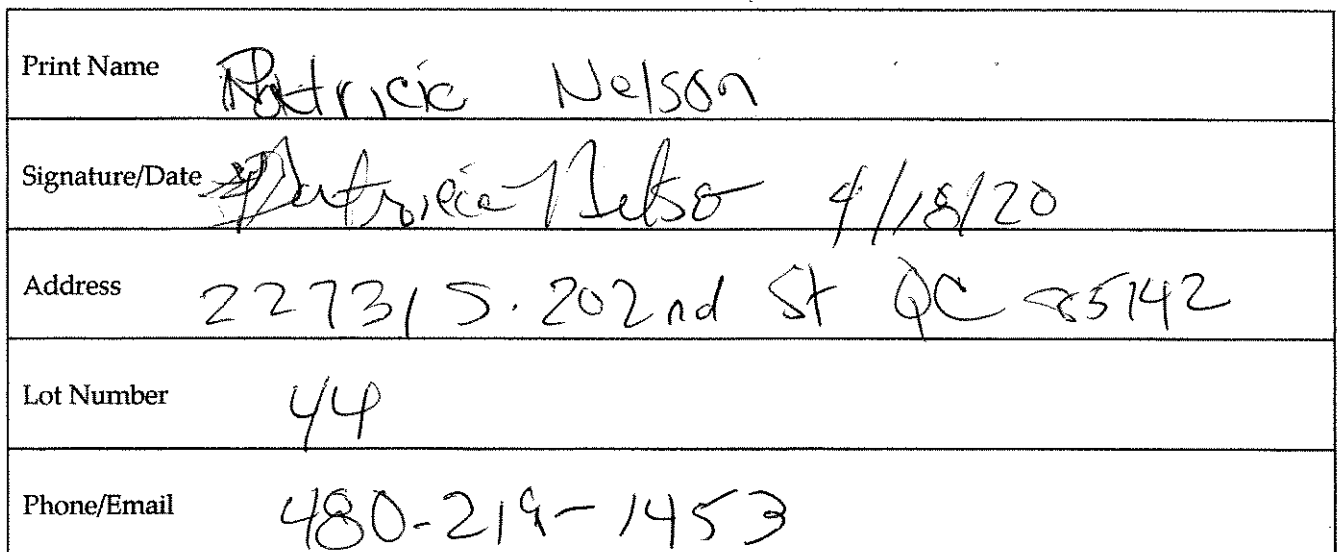 Print Name Patricia Nelson
Signature/Date Patricia Nelso 4/18/20
Address 22731 S. 202nd St QC 85142
Lot Number 44
Phone/Email 480-219-1453